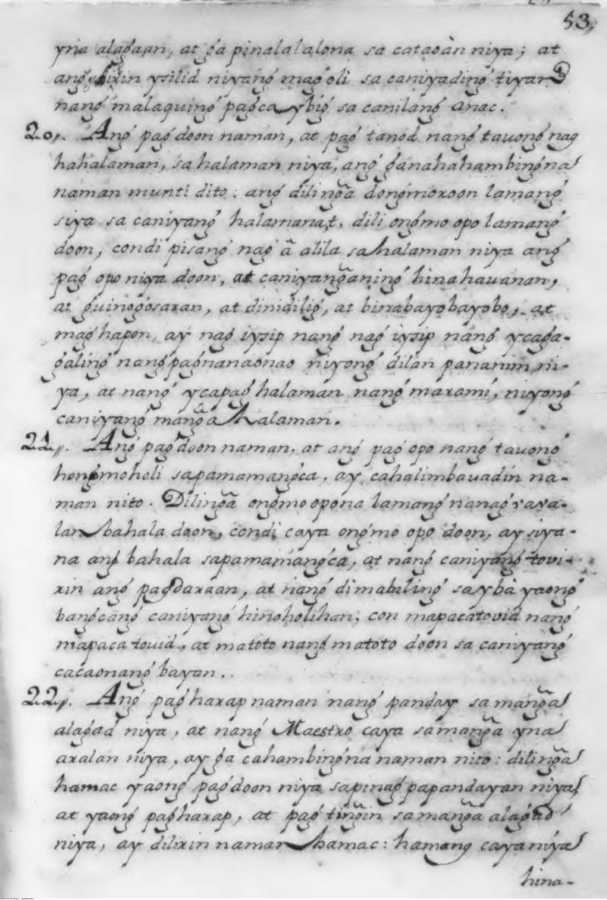 53,
yna alagaan, at ga pinalalalona sa cataoàn niya; at
ang ysilid niyang mag oli sa caniyading tiyan
nang malaquing pagca ybig sa canilang anac.
20,. Ang pag doon naman, at pag tanod nang tauong nag
hahalaman, sa halaman niya, ang ganahahambing na
naman munti dito: ang dilinga dongmoroon lamang
siya sa caniyang halamanat, dili ongmo opo lamang
doon, condi pisang nag â alila sa halaman niya ang
pag opo niya doon, at caniyanganing hinahauanan,
at guinogosaran, at dinidilig, at binabayobayobo, at
maghapon, ay nag iysip nang nag iysip nang ycaga-
galing nang pagnanaonao niyong dilan pananim ni-
ya, at nang ycapag halaman nang marami, niyong
caniyang manga halaman.
21,. Ang pag doon naman, at ang pag opo nang tauong
hongmoholi sa pamamangca, ay cahalimbauadin na-
man nito. Dilinga ongmo opo na lamang
bahala doon, condi caya ongmo opo doon, ay siya-
na ang bahala sa pamamangca, at nang caniyang toui-
rin ang pagdaraan, at nang di mabiling sa yba yaong
bangcang caniyang hinoholihan; con mapacatouid nang
mapaca touid, at matoto nang matoto doon sa caniyang
cacaonang bayan..
22,. Ang pag harap naman nang panday sa manga
alagad niya, at nang Maestro caya sa manga yna
aralan niya, ay ga cahambing na naman nito: dilinga
hamac yaong pag doon niya sa pinag papandayan niya,
at yaong pag harap, at pag tingin sa manga alagad
niya, ay dilirin naman hamac: hamang caya niya
hina-